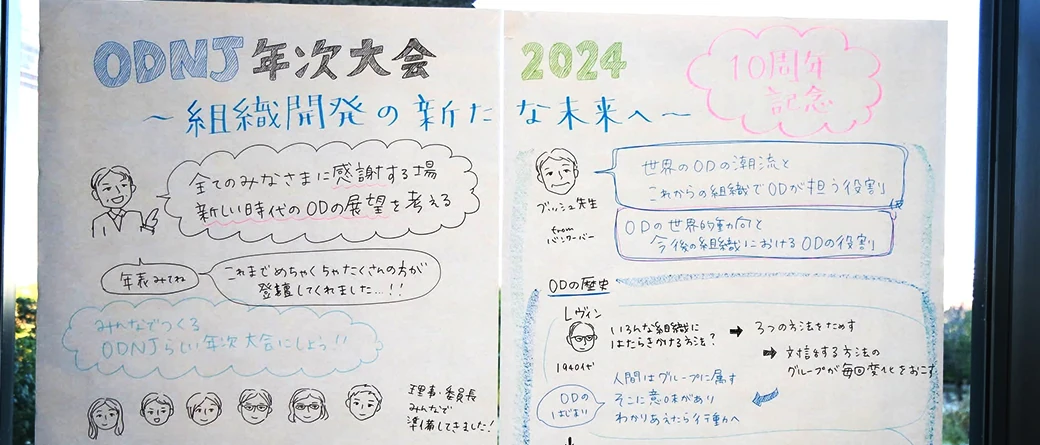 ODNJ年次大会
2024
10周年
記念
〜組織開発の新たな未来へ〜
全てのみなさまに感謝する場
新しい時代のODの展望を考える
年表みてね
これまでめちゃくちゃたくさんの方が
登壇してくれました…!!
みんなでつくる
ODNJらしい年次大会にしよう!!
理事・委員長
みんなで
準備してきました!
ブッシュ先生
from
バンクーバー
世界のODの潮流と
これからの組織でODが担う役割
は
ODの世界的動向と
今後の組織におけるODの役割
ODの歴史
レヴィン
1940年代
いろんな組織に
はたらきかける方法を?
➡ 3つの方法をためす
➡ 対話をする方法の
グループが毎回変化をおこす
ODの
はじまり
人間はグループに属す
そこに意味があり
わかりあえたら行動へ